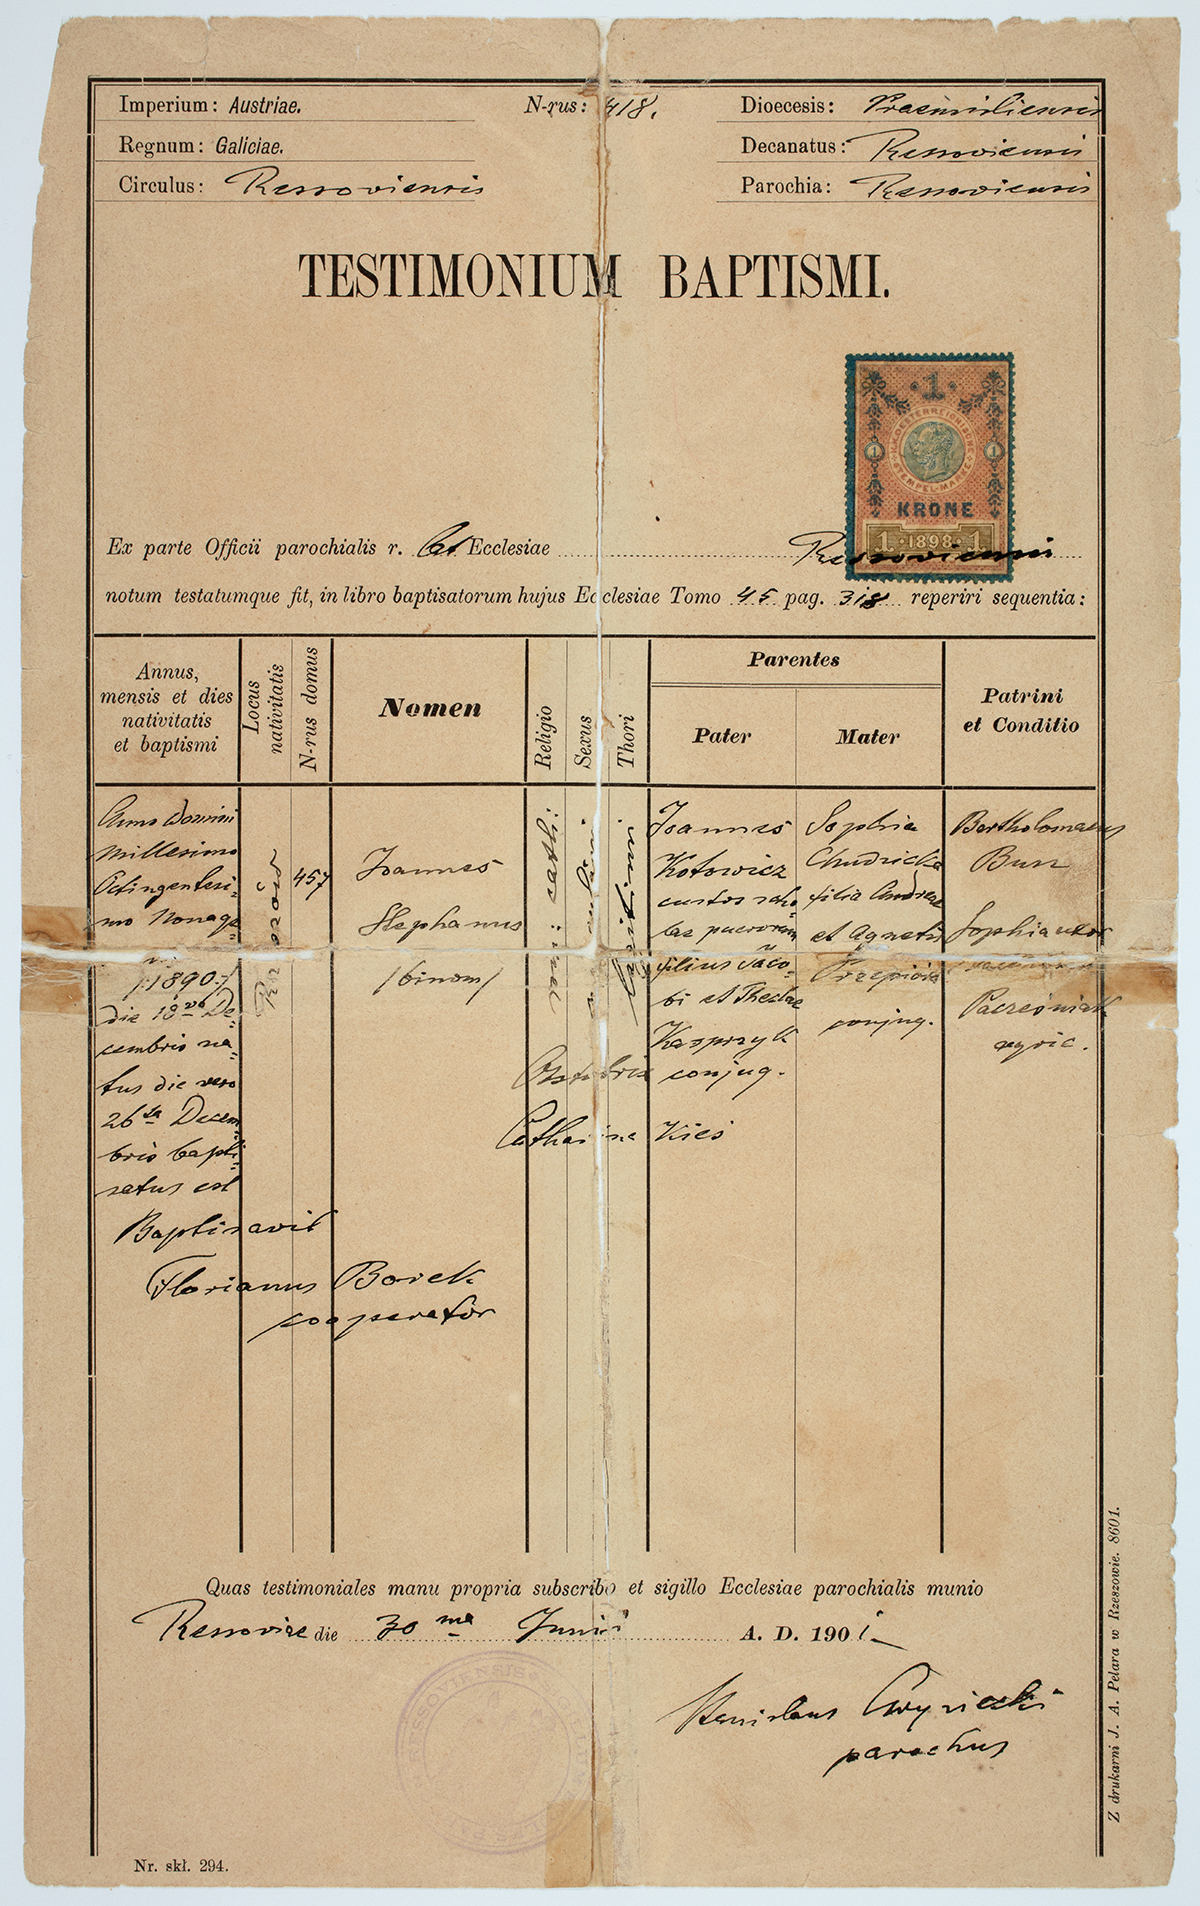 Imperium: Austriae.
N-rus: 418.
Dioecesis: Praemisliensis
Regnum: Galiciae.
Decanatus: Ressoviensis
Circulus: Ressoviensis
Parochia: Ressoviensis
TESTIMONIUM BAPTISMI.
1
K.K. OESTERREICHISCHE STEMPEL-MARKE
1 1
KRONE
1 · 1898 · 1
Ex parte Officii parochialis r. lat Ecclesiae Ressoviensis
notum testatumque fit, in libro baptisatorum hujus Ecclesiae Tomo 45 pag. 318 reperiri sequentia:
Annus,
mensis et dies
nativitatis
et baptismi
Locus
nativitatis
N-rus domus
Nomen
Religio
Sexus
Thori
Parentes
Pater
Mater
Patrini
et Conditio
Anno Domini
Millesimo
Octingentesi-
mo Nonage-
/:1890:/
die 18va De-
cembris na-
tus die vero
26ta Decem-
bris bapti-
satus est
Rzeszów
457
Joannes
Stephanus
/binom/
Joannes
Kotowicz
custos scho-
lae puerorum
filius Jaco-
bi et Theclae
Kasprzyk
conjug.
Sophia
Chudzicka
filia Andreae
et Agnetis
conjug.
Bartholomaeus
Sophia uxor
Pacześniak
agric.
Obstetrix
Catharina Kieś
Baptisavit
Florianus Borek
cooperator
Quas testimoniales manu propria subscribo et sigillo Ecclesiae parochialis munio
Ressoviae die 30 ma Junii A. D. 1901
Stanislaus
parochus
Z drukarni J. A. Pelara w Rzeszowie. 8601.
Nr. skł. 294.